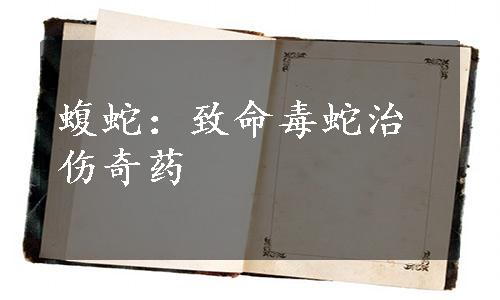 蝮蛇：致命毒蛇治
伤奇药